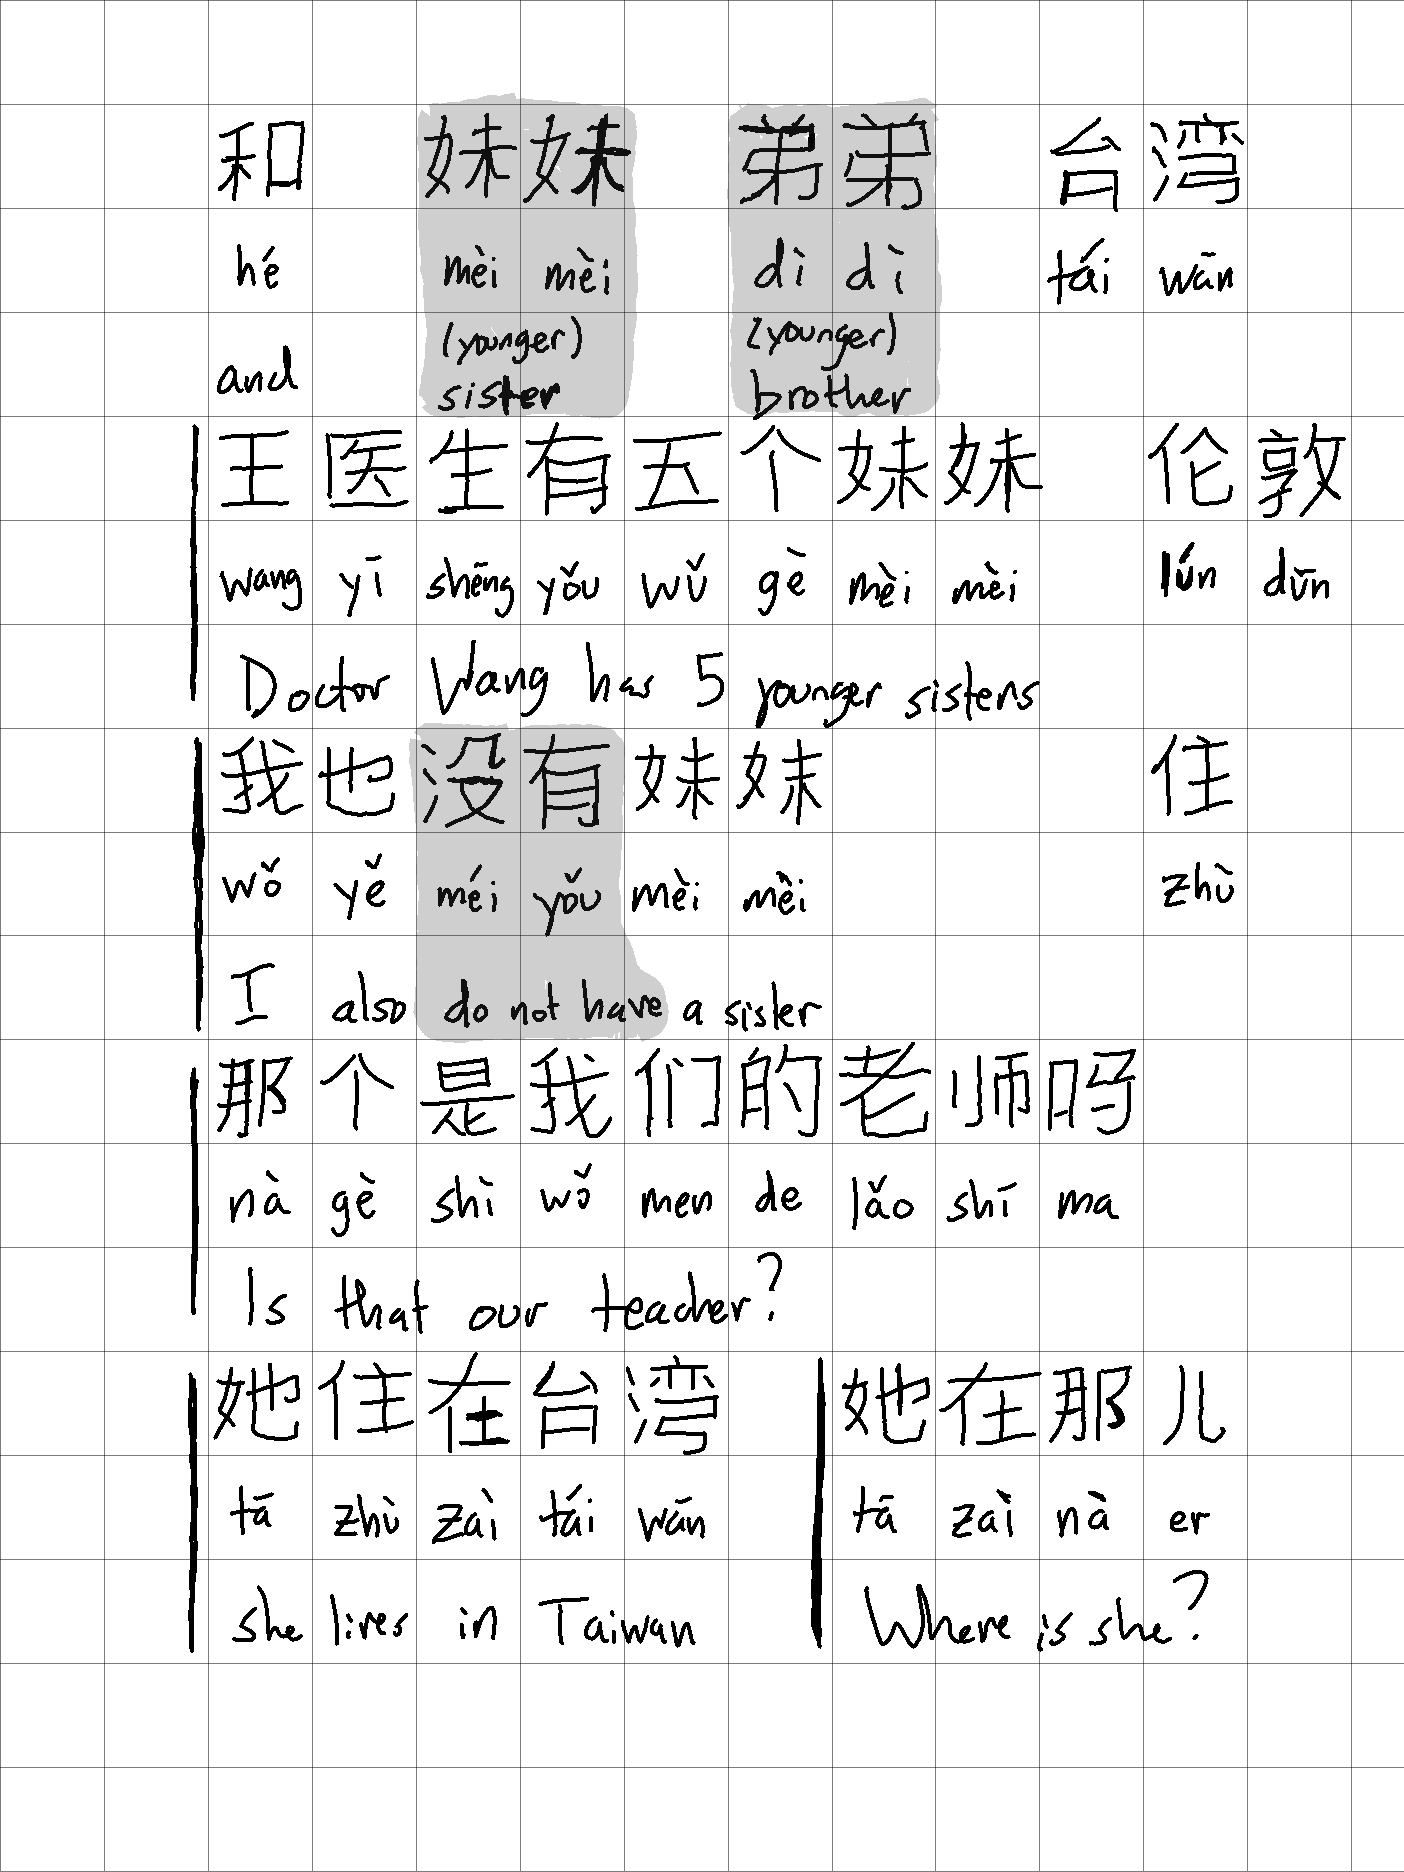 和 妹妹 弟弟 台湾
hé mèi mèi dì dì tái wān
and (younger) sister (younger) brother
王医生有五个妹妹 伦敦
wang yī shēng yǒu wǔ gè mèi mèi lún dūn
Doctor Wang has 5 younger sisters
我也没有妹妹 住
wǒ yě méi yǒu mèi mèi zhù
I also do not have a sister
那个是我们的老师吗
nà gè shì wǒ men de lǎo shī ma
Is that our teacher?
她住在台湾 她在那儿
tā zhù zài tái wān tā zài nà er
she lives in Taiwan Where is she?